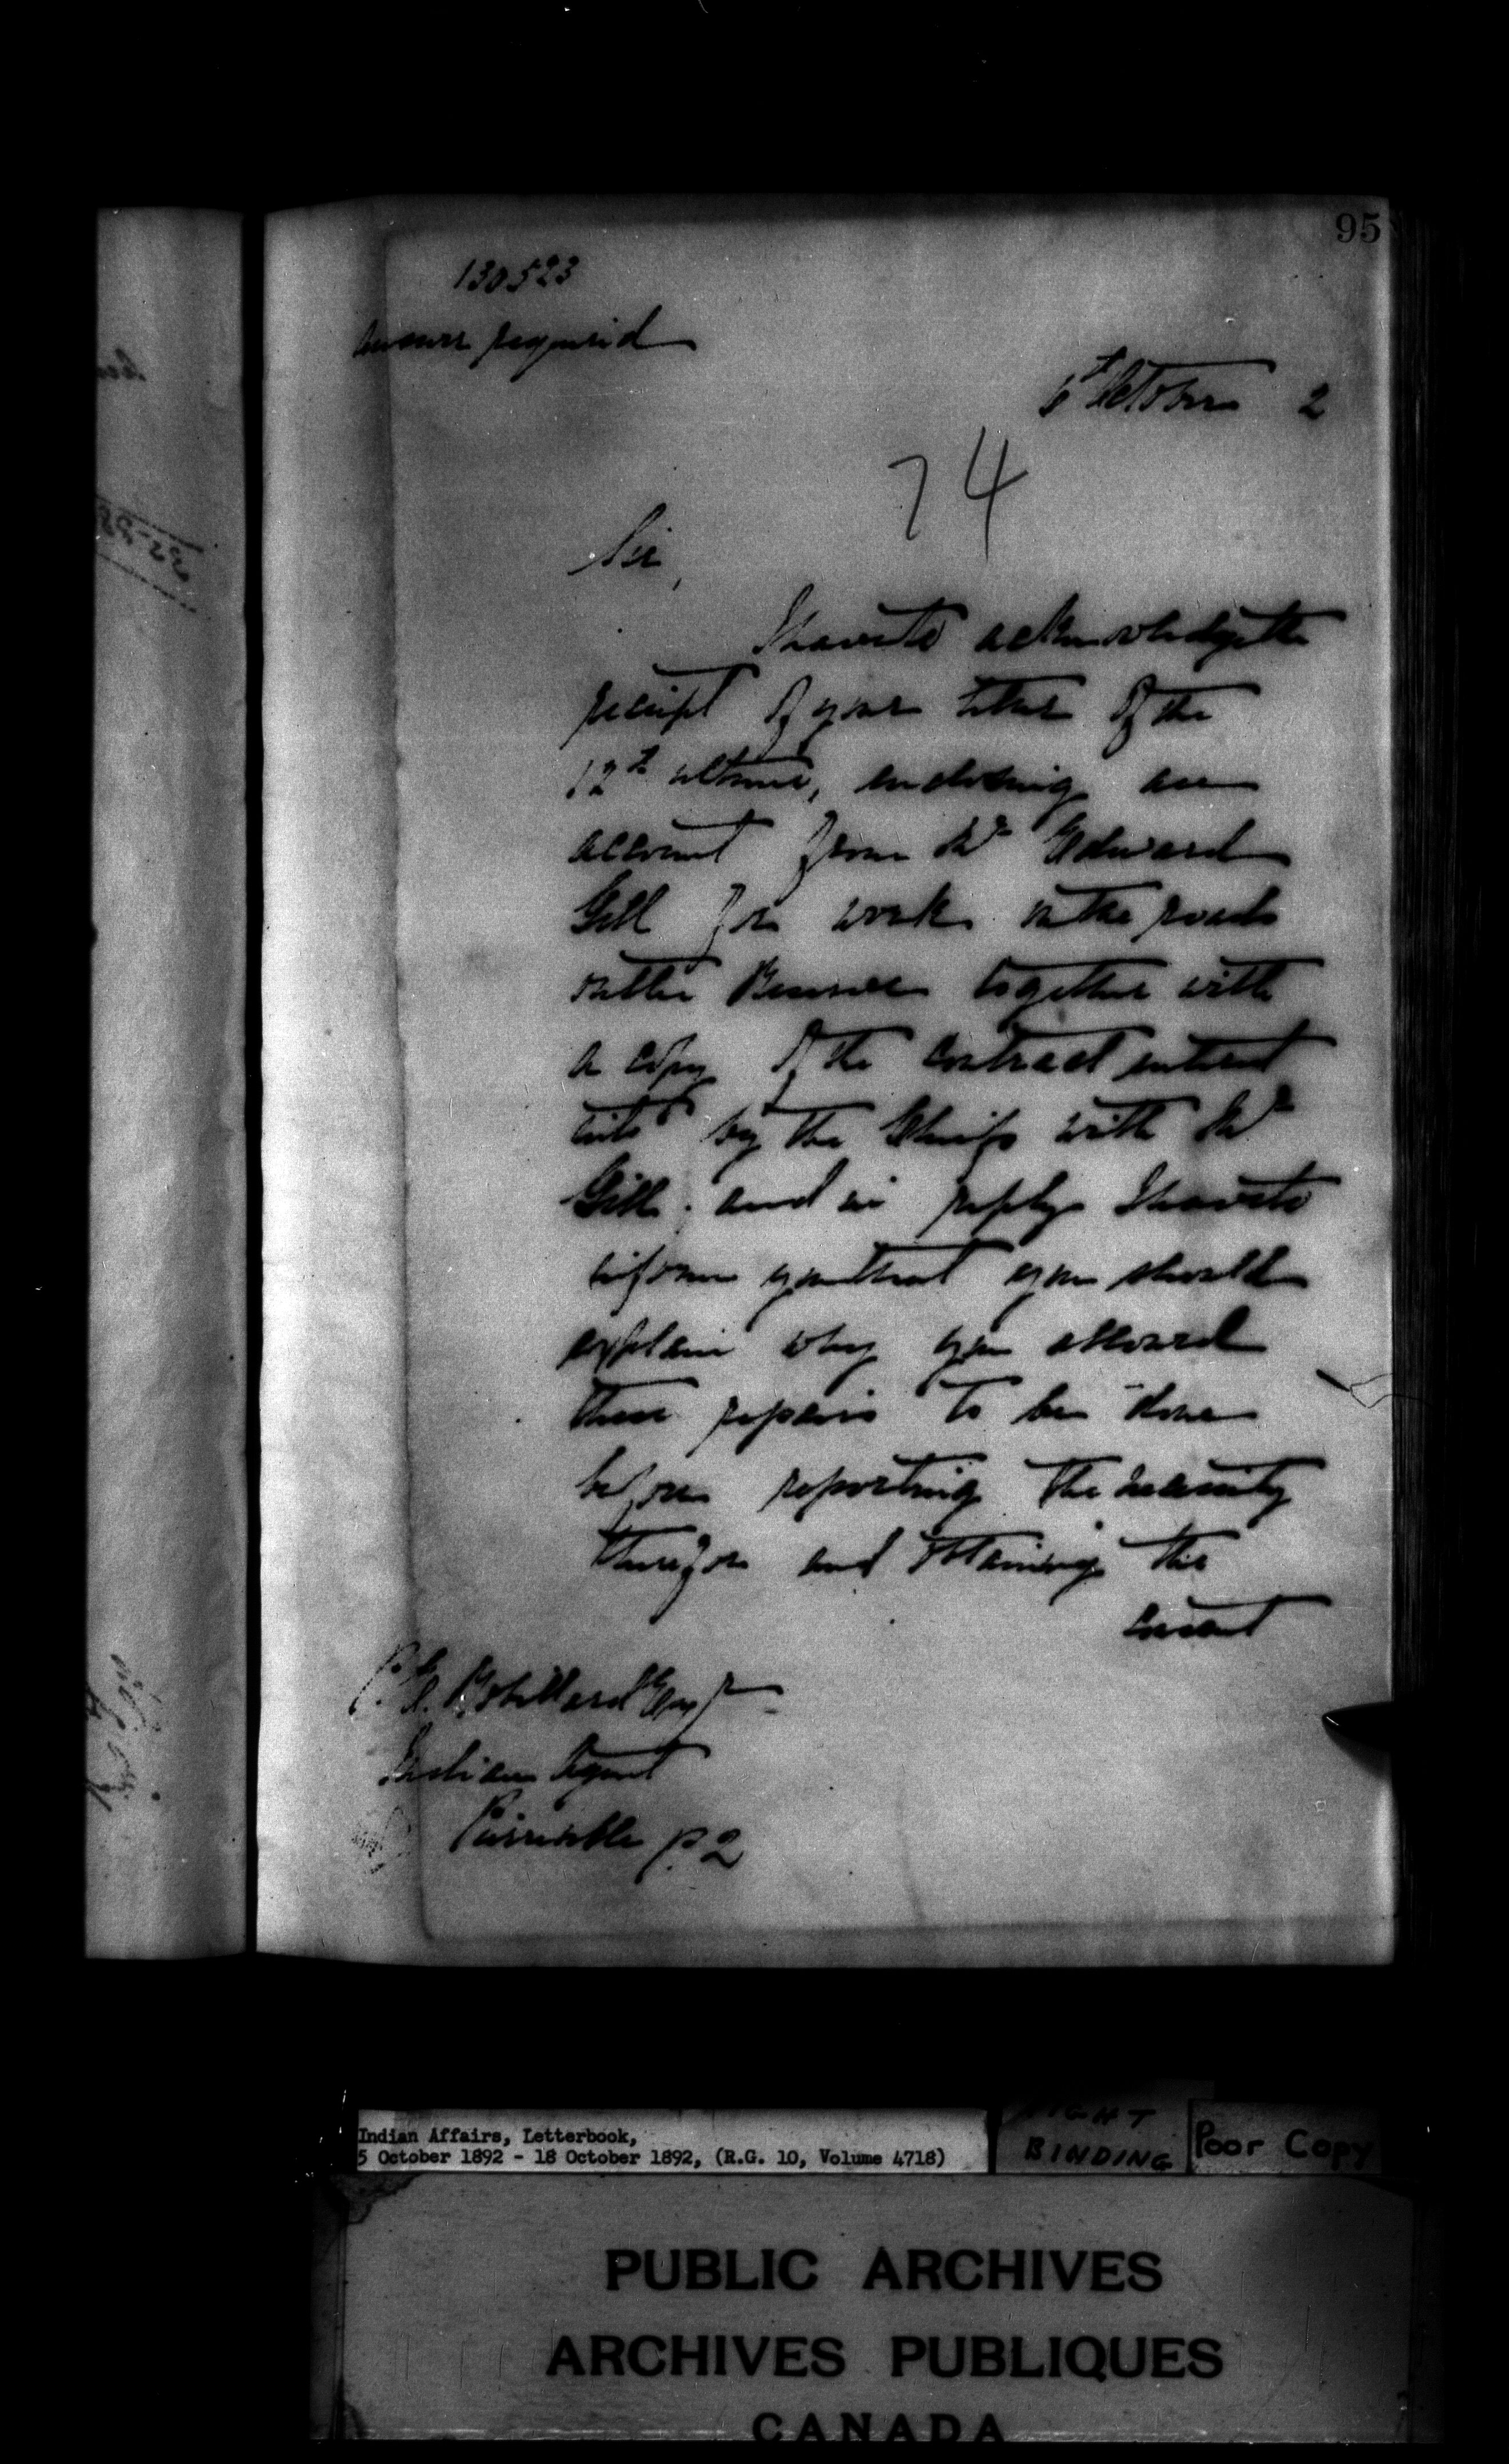 95
130523
Answer required
6th October 2
74
Sir,
I have to acknowledge the
receipt of your letter of the
12th ultimo, enclosing an
account from Mr Edward
Gill for work on the roads
on the Reserve together with
a copy of the contract entered
into by the Chiefs with Mr
Gill; and in reply I have to
inform you that you should
explain why you allowed
these repairs to be done
before reporting the necessity
therefor and obtaining the
consent
P.E. Robillard Esqr
Indian Agent
Pierreville P.Q
Indian Affairs, Letterbook,
5 October 1892 - 18 October 1892, (R.G. 10, Volume 4718)
TIGHT
BINDING
Poor Copy
PUBLIC ARCHIVES
ARCHIVES PUBLIQUES
CANADA